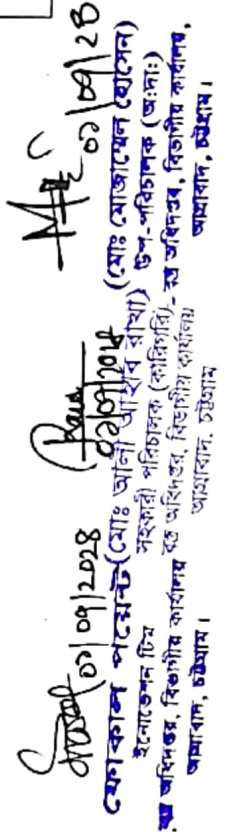 ০১/০৭/২০২৪
ফোকাল পয়েন্ট
ইনোভেশন টিম
বস্ত্র অধিদপ্তর, বিভাগীয় কার্যালয়
আগ্রাবাদ, চট্টগ্রাম।
(মোঃ আলী আহাব রাখা)
সহকারী পরিচালক (কারিগরি)
বস্ত্র অধিদপ্তর, বিভাগীয় কার্যালয়
আগ্রাবাদ, চট্টগ্রাম
০১/০৭/২৪
(মোঃ মোজাম্মেল হোসেন)
উপ-পরিচালক (অঃদাঃ)
বস্ত্র অধিদপ্তর, বিভাগীয় কার্যালয়,
আগ্রাবাদ, চট্টগ্রাম।